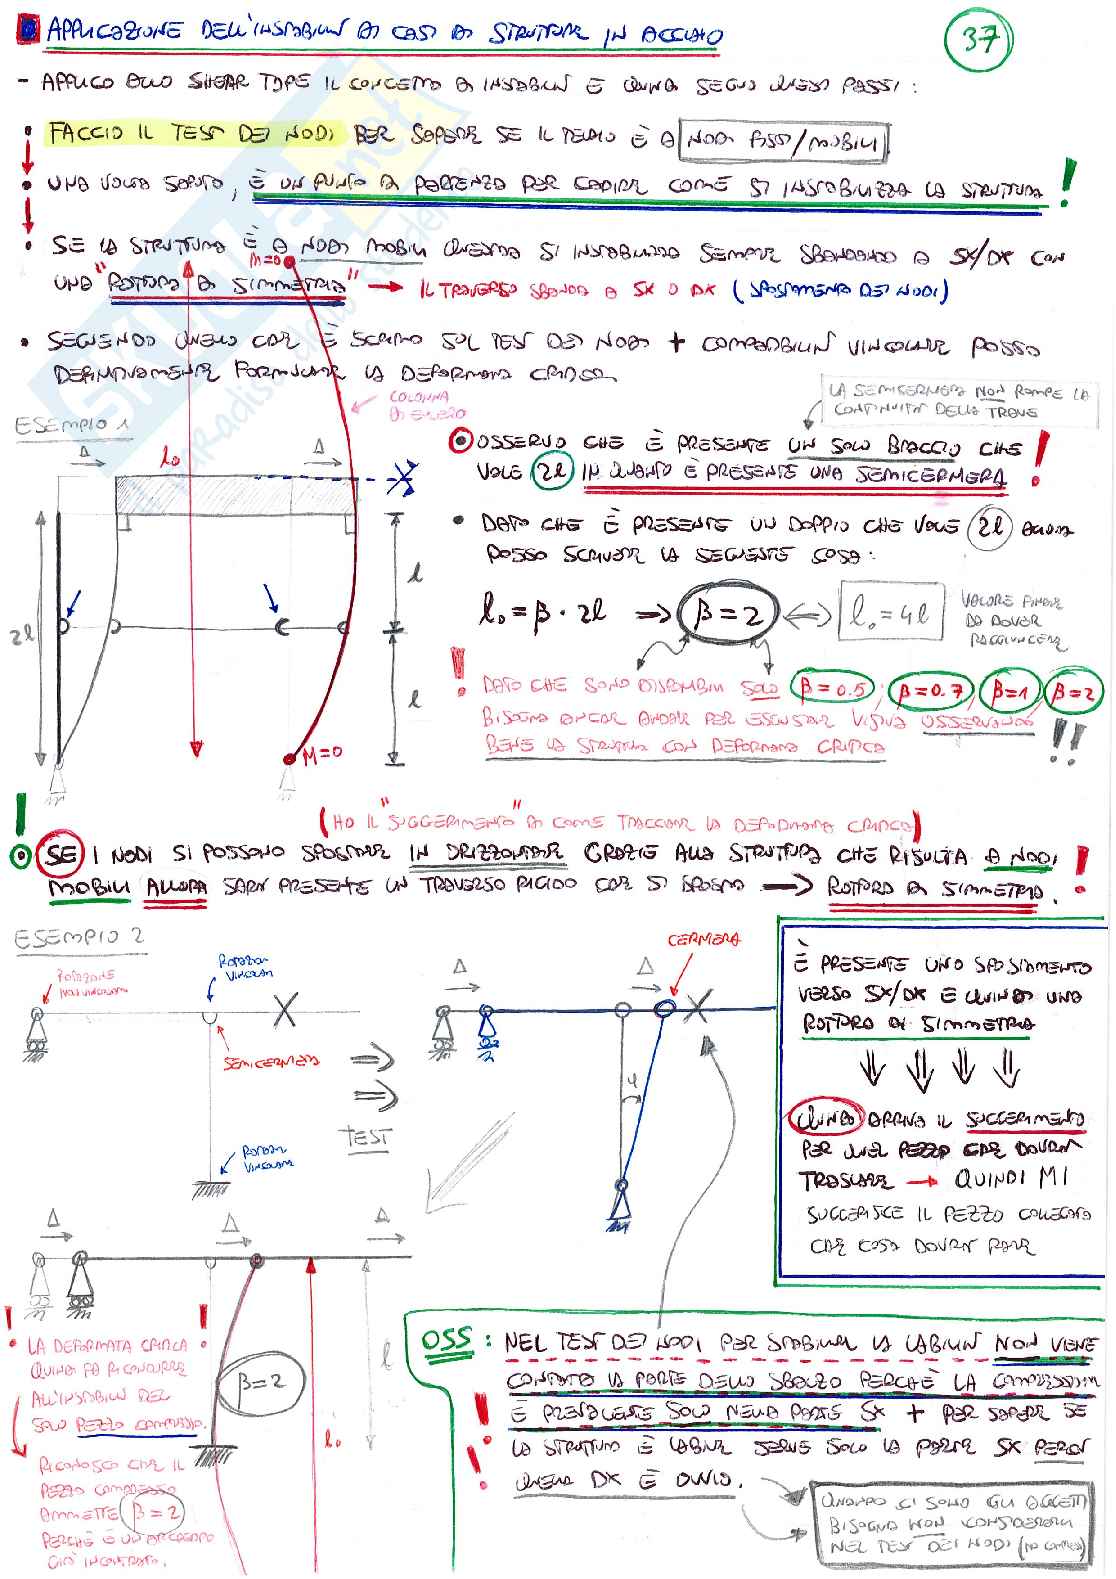 APPLICAZIONE DELL'INSTABILITÀ AI CASI DI STRUTTURE IN ACCIAIO
37
- APPLICO ALLO SHEAR TYPE IL CONCETTO DI INSTABILITÀ E QUINDI SEGUO QUESTI PASSI :
FACCIO IL TEST DEI NODI PER SAPERE SE IL TELAIO È A NODI FISSI/MOBILI
UNA VOLTA SAPUTO, È UN PUNTO DI PARTENZA PER CAPIRE COME SI INSTABILIZZA LA STRUTTURA !
SE LA STRUTTURA È A NODI MOBILI QUESTA SI INSTABILIZZA SEMPRE SBANDANDO A SX/DX CON
M=0
UNA "ROTTURA DI SIMMETRIA" → IL TRAVERSO SBANDA A SX O DX (SPOSTAMENTO DEI NODI)
SEGUENDO QUELLO CHE È SCRITTO SUL TEST DEI NODI + COMPATIBILITÀ VINCOLARE POSSO
DEFINITIVAMENTE FORMULARE LA DEFORMATA CRITICA
COLONNA
DI EULERO
LA SEMICERNIERA NON ROMPE LA
CONTINUITÀ DELLA TRAVE
ESEMPIO 1
Δ
l₀
Δ
OSSERVO CHE È PRESENTE UN SOLO BRACCIO CHE
VALE 2l IN QUANTO È PRESENTE UNA SEMICERNIERA !
DATO CHE È PRESENTE UN DOPPIO CHE VALE 2l ALLORA
POSSO SCRIVERE LA SEGUENTE COSA :
l
2l
l₀ = β · 2l ⇒ β=2 ↔ l₀=4l
VALORE FINALE
DA DOVER
RAGGIUNGERE
l
M=0
! DATO CHE SONO DISPONIBILI SOLO β=0.5, β=0.7, β=1, β=2
BISOGNA ANCHE ANDARE PER ESCLUSIONE VISIVA OSSERVANDO
BENE LA STRUTTURA CON DEFORMATA CRITICA !!
(HO IL "SUGGERIMENTO" DI COME TRACCIARE LA DEFORMATA CRITICA)
SE I NODI SI POSSONO SPOSTARE IN ORIZZONTALE GRAZIE ALLA STRUTTURA CHE RISULTA A NODI
MOBILI ALLORA SARÀ PRESENTE UN TRAVERSO RIGIDO CHE SI SPOSTA → ROTTURA DI SIMMETRIA. !
ESEMPIO 2
ROTAZIONE
NON VINCOLATA
ROTAZIONE
VINCOLATA
SEMICERNIERA
ROTAZIONE
VINCOLATA
⇒
⇒
TEST
Δ
Δ
CERNIERA
φ
È PRESENTE UNO SPOSTAMENTO
VERSO SX/DX E QUINDI UNA
ROTTURA DI SIMMETRIA
QUINDI ARRIVA IL SUGGERIMENTO
PER QUEL PEZZO CHE DOVRÀ
TRASLARE → QUINDI MI
SUGGERISCE IL PEZZO COLLEGATO
CHE COSA DOVRÀ FARE
Δ
Δ
Δ
β=2
l₀
l
! LA DEFORMATA CRITICA !
QUINDI FA RICONDURRE
ALL'INSTABILITÀ DEL
SOLO PEZZO COMPRESSO.
RICONOSCO CHE IL
PEZZO COMPRESSO
AMMETTE β=2
PERCHÈ È UN
GIÀ INCONTRATO.
OSS : NEL TEST DEI NODI PER STABILIRE LA LABILITÀ NON VIENE
CONTATA LA PARTE DELLO SBALZO PERCHÈ LA COMPRESSIONE
È PREVALENTE SOLO NELLA PARTE SX + PER SAPERE SE
LA STRUTTURA È LABILE SERVE SOLO LA PARTE SX PERCHÈ
QUELLA DX È OVVIO.
QUANDO CI SONO GLI AGGETTI
BISOGNA NON CONSIDERARLI
NEL TEST DEI NODI